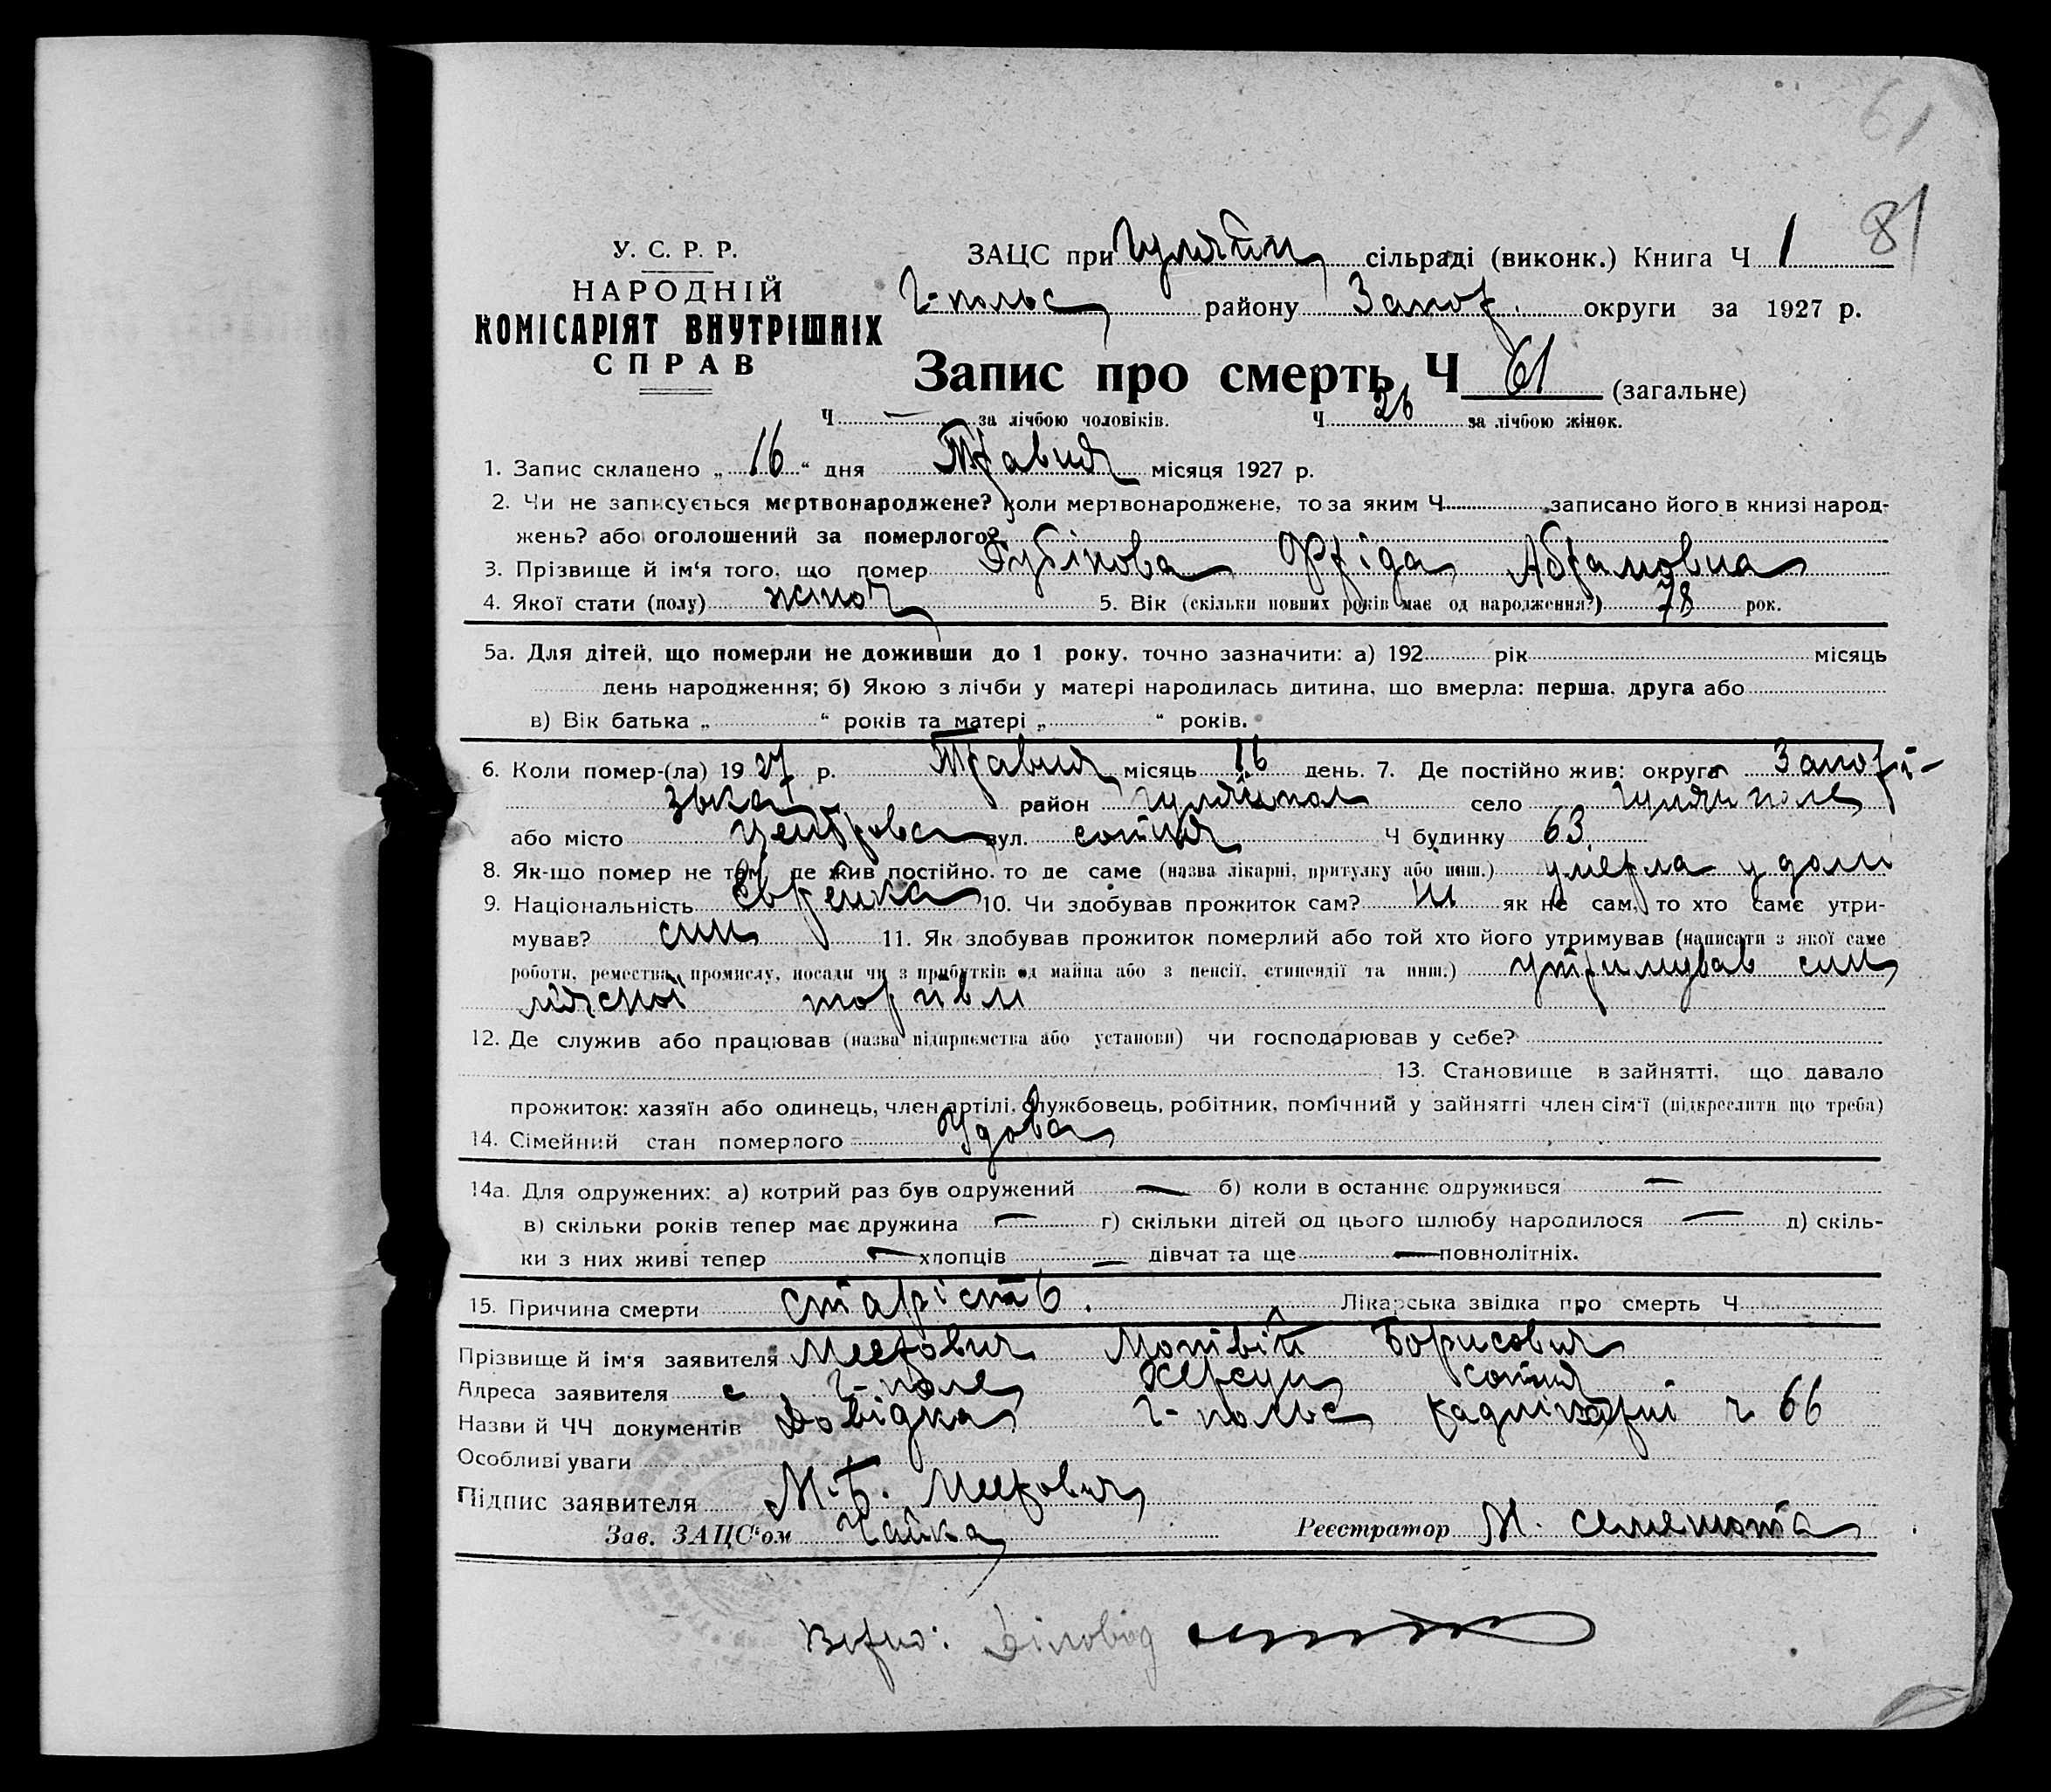 61
81
У. С. Р. Р.
НАРОДНІЙ
КОМІСАРІЯТ ВНУТРІШНІХ
СПРАВ
ЗАЦС при Гуляйп сільраді (виконк.) Книга Ч 1
Г-польс району Запор. округи за 1927 р.
Запис про смерть Ч 61 (загальне)
Ч — за лічбою чоловіків. Ч 26 за лічбою жінок.
1. Запис складено „ 16 “ дня Травня місяця 1927 р.
2. Чи не записується мертвонароджене? коли мертвонароджене, то за яким Ч записано його в книзі народ-
жень? або оголошений за померлого?
3. Прізвище й ім‘я того, що помер Рубінова Фріда Абрамовна
4. Якої стати (полу) жіноч 5. Вік (скільки повних років має од народження?) 78 рок.
5а. Для дітей, що померли не доживши до 1 року, точно зазначити: а) 192 рік місяць
день народження; б) Якою з лічби у матері народилась дитина, що вмерла: перша, друга або
в) Вік батька „ “ років та матері „ “ років.
6. Коли помер-(ла) 1927 р. Травня місяць 16 день. 7. Де постійно жив: округа Запорі-
зька район Гуляйпол село Гуляйполе
або місто Центрова вул. сотня Ч будинку 63
8. Як-що помер не там, де жив постійно, то де саме (назва лікарні, притулку або инш.) умерла у домі
9. Національність Єврейка 10. Чи здобував прожиток сам? ні як не сам, то хто саме утри-
мував? син 11. Як здобував прожиток померлий або той хто його утримував (написати з якої саме
роботи, ремества, промислу, посади чи з прибутків од майна або з пенсії, стипендії та инш.) утримував син
мясної торгівлі
12. Де служив або працював (назва підприємства або установи) чи господарював у себе?
13. Становище в зайнятті, що давало
прожиток: хазяїн або одинець, член артілі, службовець, робітник, помічний у зайнятті член сім‘ї (підкреслити що треба)
14. Сімейний стан померлого Удова
14а. Для одружених: а) котрий раз був одружений — б) коли в останнє одружився —
в) скільки років тепер має дружина — г) скільки дітей од цього шлюбу народилося — д) скіль-
ки з них живі тепер — хлопців — дівчат та ще — повнолітніх.
15. Причина смерти старість. Лікарська звідка про смерть Ч
Прізвище й ім‘я заявителя Меерович Матвій Борисович
Адреса заявителя с. Г-поле Херсун сотня
Назви й ЧЧ документів Довідка Г-польс ч 66
Особливі уваги
Підпис заявителя М. Б. Меерович
Зав. ЗАЦС‘ом Чайка Реєстратор М. Семенота
Вірно: Діловод